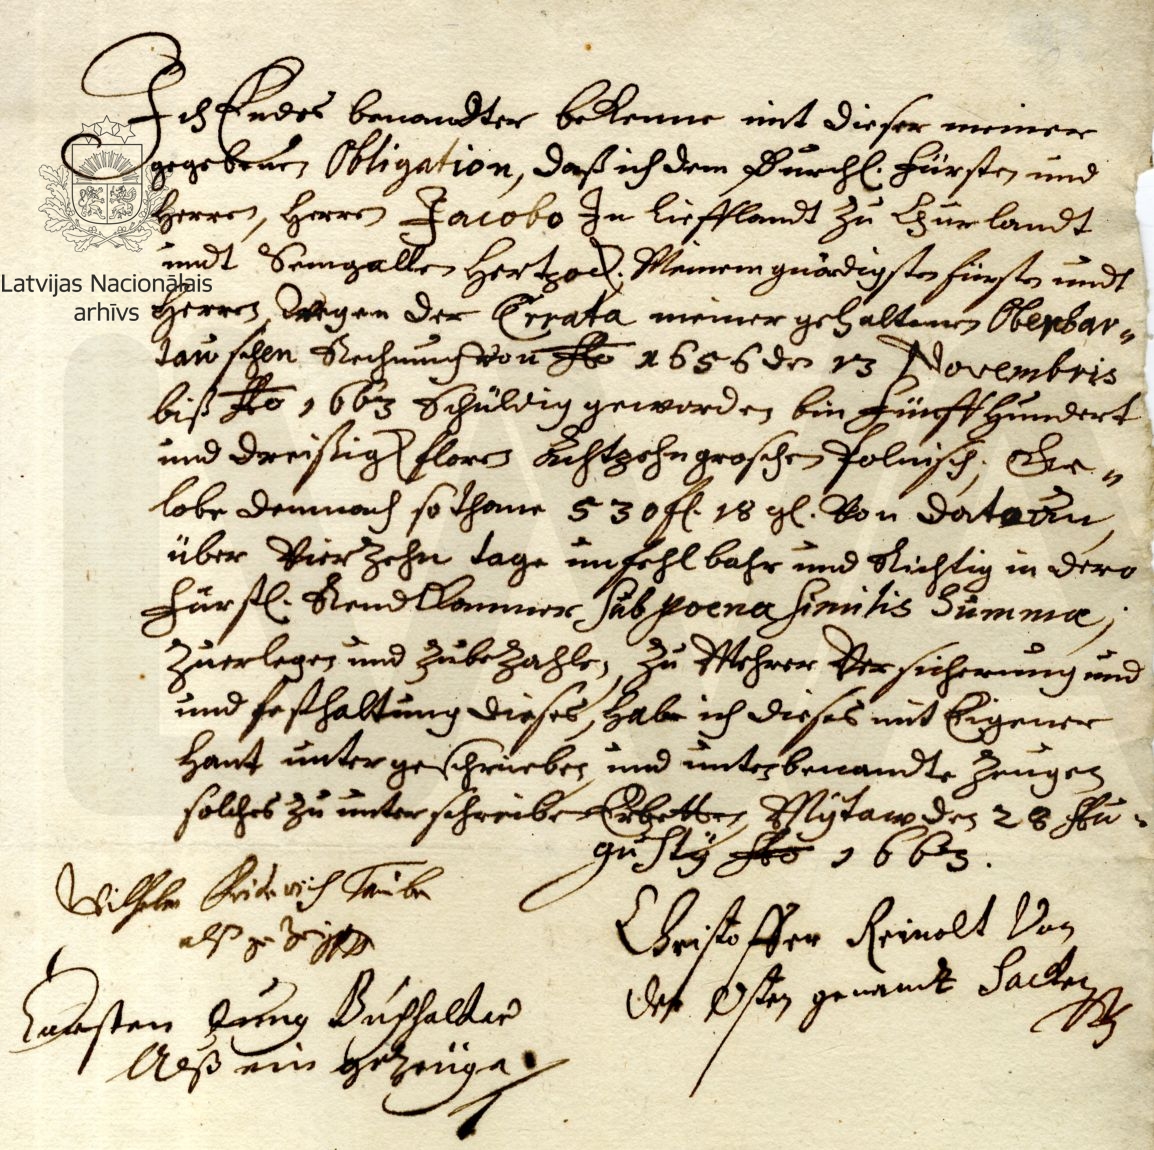 Ich Endes benandter bekenne mit dieser meiner
gegebenen Obligation, daß ich dem Durchl. Fürsten und
Herren, Herren Jacobo In Liefflandt zu Churlandt
undt Semgallen Hertzog. Meinem gnädigsten Fürsten undt
Latvijas Nacionālais
arhīvs
Herren, Wegen der Errata meiner gehaltenen Oberbar„
tauschen Rechnung von Ao 1656 den 13 Novembris
biß Ao 1663 Schüldig geworden bin Fünff Hundert
und dreissig floren Achtzehn groschen Polnisch, Ge„
lobe demnach sothane 530 fl. 18 gl. Von dato an,
über Vierzehn tage unfehlbahr und Richtig in dero
Fürstl. Rendt Cammer sub poena similis Summæ,
Zuerlegen und Zubezahlen, Zu Mehrer Versicherung und
und festhaltung dieses, habe ich dieses mit Eigener
Hant untergeschrieben und unterbenandte Zeugen
solches zu unterschreiben Erbetten, Mÿtaw den 28 Au-
gusty Ao 1663.
Wilhelm Friderich Taube
alß
Christoffer Reinolt Von
der Osten genandt Sacken
Carsten Jung Buchhalter
Alß ein gezeüge